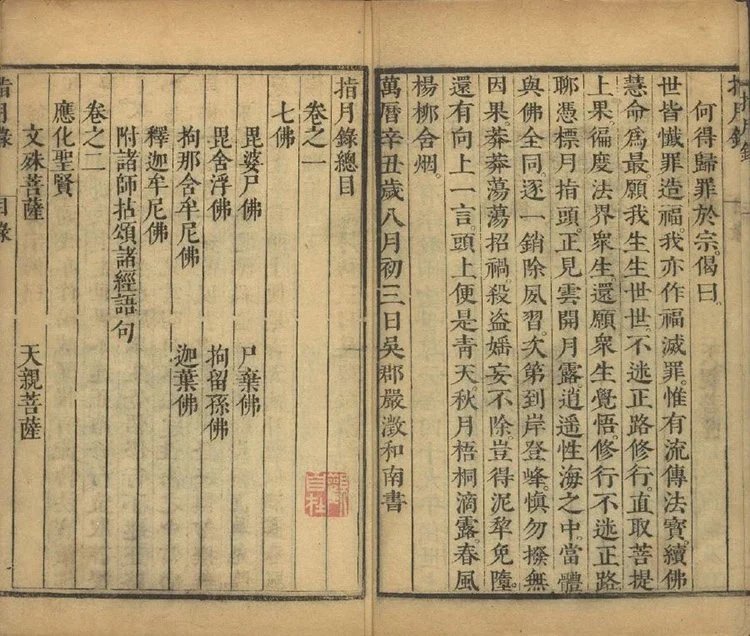 指月錄
何得歸罪於宗。偈曰。
世皆懺罪造福。我亦作福滅罪。惟有流傳法寶。續佛
慧命為最。願我生生世世。不迯正路修行。直取菩提
上果。徧度法界衆生。還願衆生覺悟。修行不迯正路
聊憑標月指頭。正見雲開月露。逍遥性海之中。當體
與佛全同。逐一銷除夙習。次第到岸登峰。慎勿撥無
因果。莽莽蕩蕩招禍。殺盜婬妄不除。豈得泥犂免墮。
還有向上一言。頭上便是青天。秋月梧桐滴露。春風
楊柳含烟。
萬曆辛丑歲八月初三日吳郡嚴澂和南書
指月錄總目
卷之一
七佛
毘婆尸佛 尸棄佛
毘舍浮佛 拘留孫佛
拘那含牟尼佛 迦葉佛
釋迦牟尼佛
附諸師拈頌諸經語句
卷之二
應化聖賢
文殊菩薩 天親菩薩
指月錄 目錄